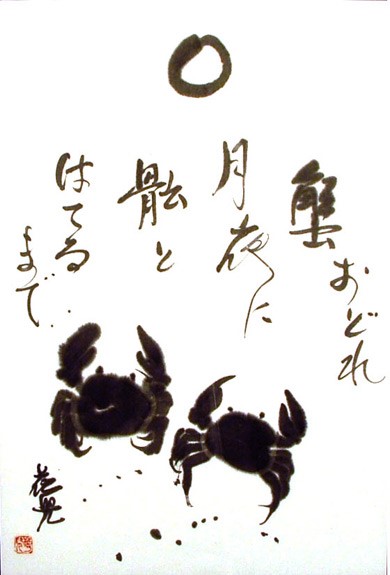 蟹おどれ
月夜に
骸と
はてる
まで
花兆